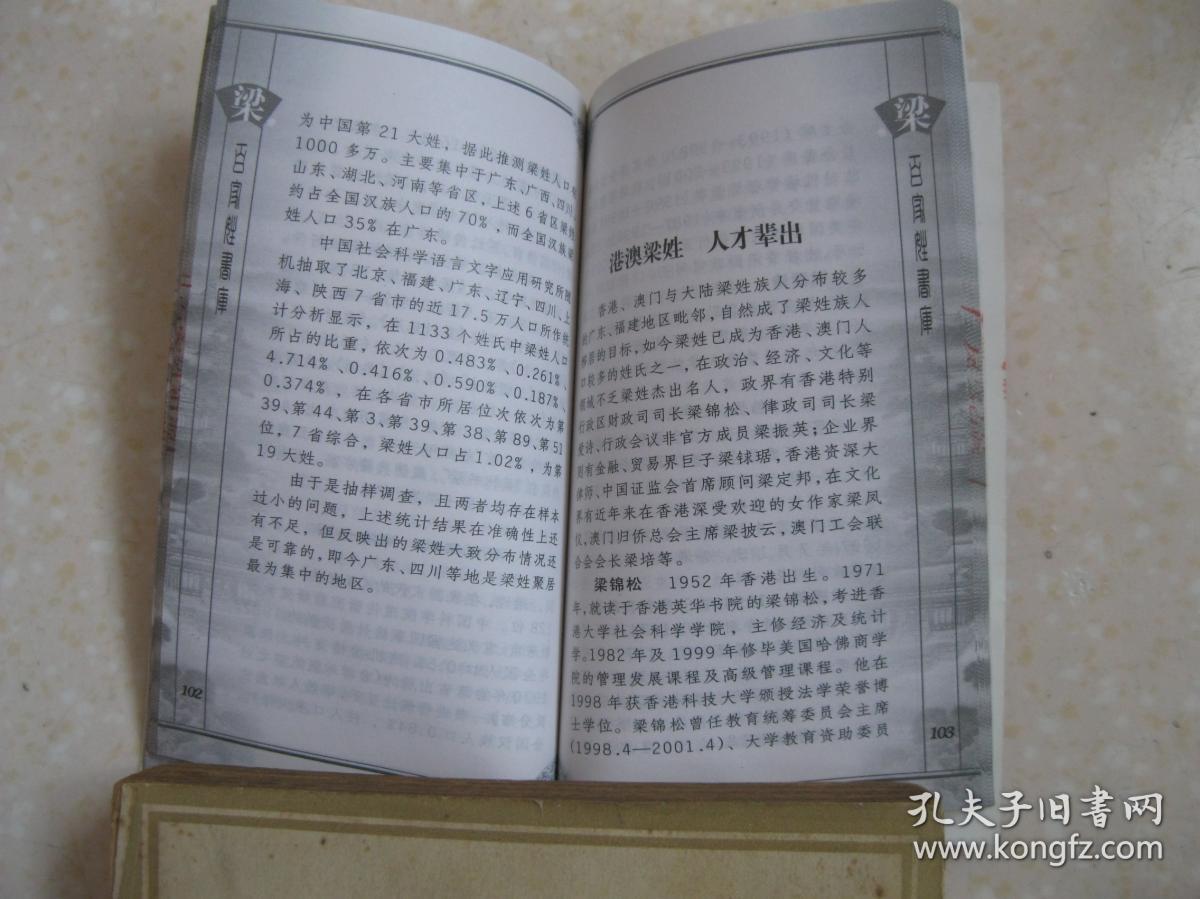 梁
百家姓書庫
为中国第 21 大姓，据此推测梁姓人口
1000 多万。主要集中于广东、广西、四川、
山东、湖北、河南等省区，上述 6 省区梁
约占全国汉族人口的 70%，而全国汉族
姓人口 35% 在广东。
中国社会科学语言文字应用研究所随
机抽取了北京、福建、广东、辽宁、四川、上
海、陕西 7 省市的近 17.5 万人口所作统
计分析显示，在 1133 个姓氏中梁姓人口
所占的比重，依次为 0.483%、0.261%、
4.714%、0.416%、0.590%、0.187%、
0.374%，在各省市所居位次依次为第
39、第 44、第 3、第 39、第 38、第 89、第 51
位，7 省综合，梁姓人口占 1.02%，为第
19 大姓。
由于是抽样调查，且两者均存在样本
过小的问题，上述统计结果在准确性上还
有不足，但反映出的梁姓大致分布情况还
是可靠的，即今广东、四川等地是梁姓聚居
最为集中的地区。
102
梁
百家姓書庫
港澳梁姓 人才辈出
香港、澳门与大陆梁姓族人分布较多
的广东、福建地区毗邻，自然成了梁姓族人
移磨的目标，如今梁姓已成为香港、澳门人
口较多的姓氏之一，在政治、经济、文化等
领域不乏梁姓杰出名人，政界有香港特别
行政区财政司司长梁锦松、律政司司长梁
爱诗、行政会议非官方成员梁振英；企业界
则有金融、贸易界巨子梁铽琚，香港资深大
律师、中国证监会首席顾问梁定邦，在文化
界有近年来在香港深受欢迎的女作家梁凤
仪，澳门归侨总会主席梁披云，澳门工会联
合会会长梁培等。
梁锦松 1952 年香港出生。1971
年，就读于香港英华书院的梁锦松，考进香
港大学社会科学学院，主修经济及统计
学。1982 年及 1999 年修毕美国哈佛商学
院的管理发展课程及高级管理课程。他在
1998 年获香港科技大学颁授法学荣誉博
士学位。梁锦松曾任教育统筹委员会主席
(1998.4—2001.4)、大学教育资助委员
103
孔夫子旧书网
www.kongfz.com